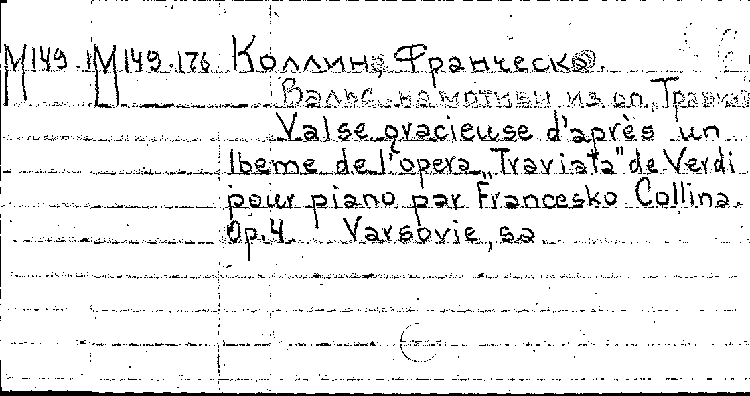 М149. М149.176 Коллина Франческо.
Вальс на мотивы из оп. „Травиа
Valse gracieuse d'après un
theme de l'opera „Traviata" de Verdi
pour piano par Francesko Collina.
Op.4 Varsovie, sa